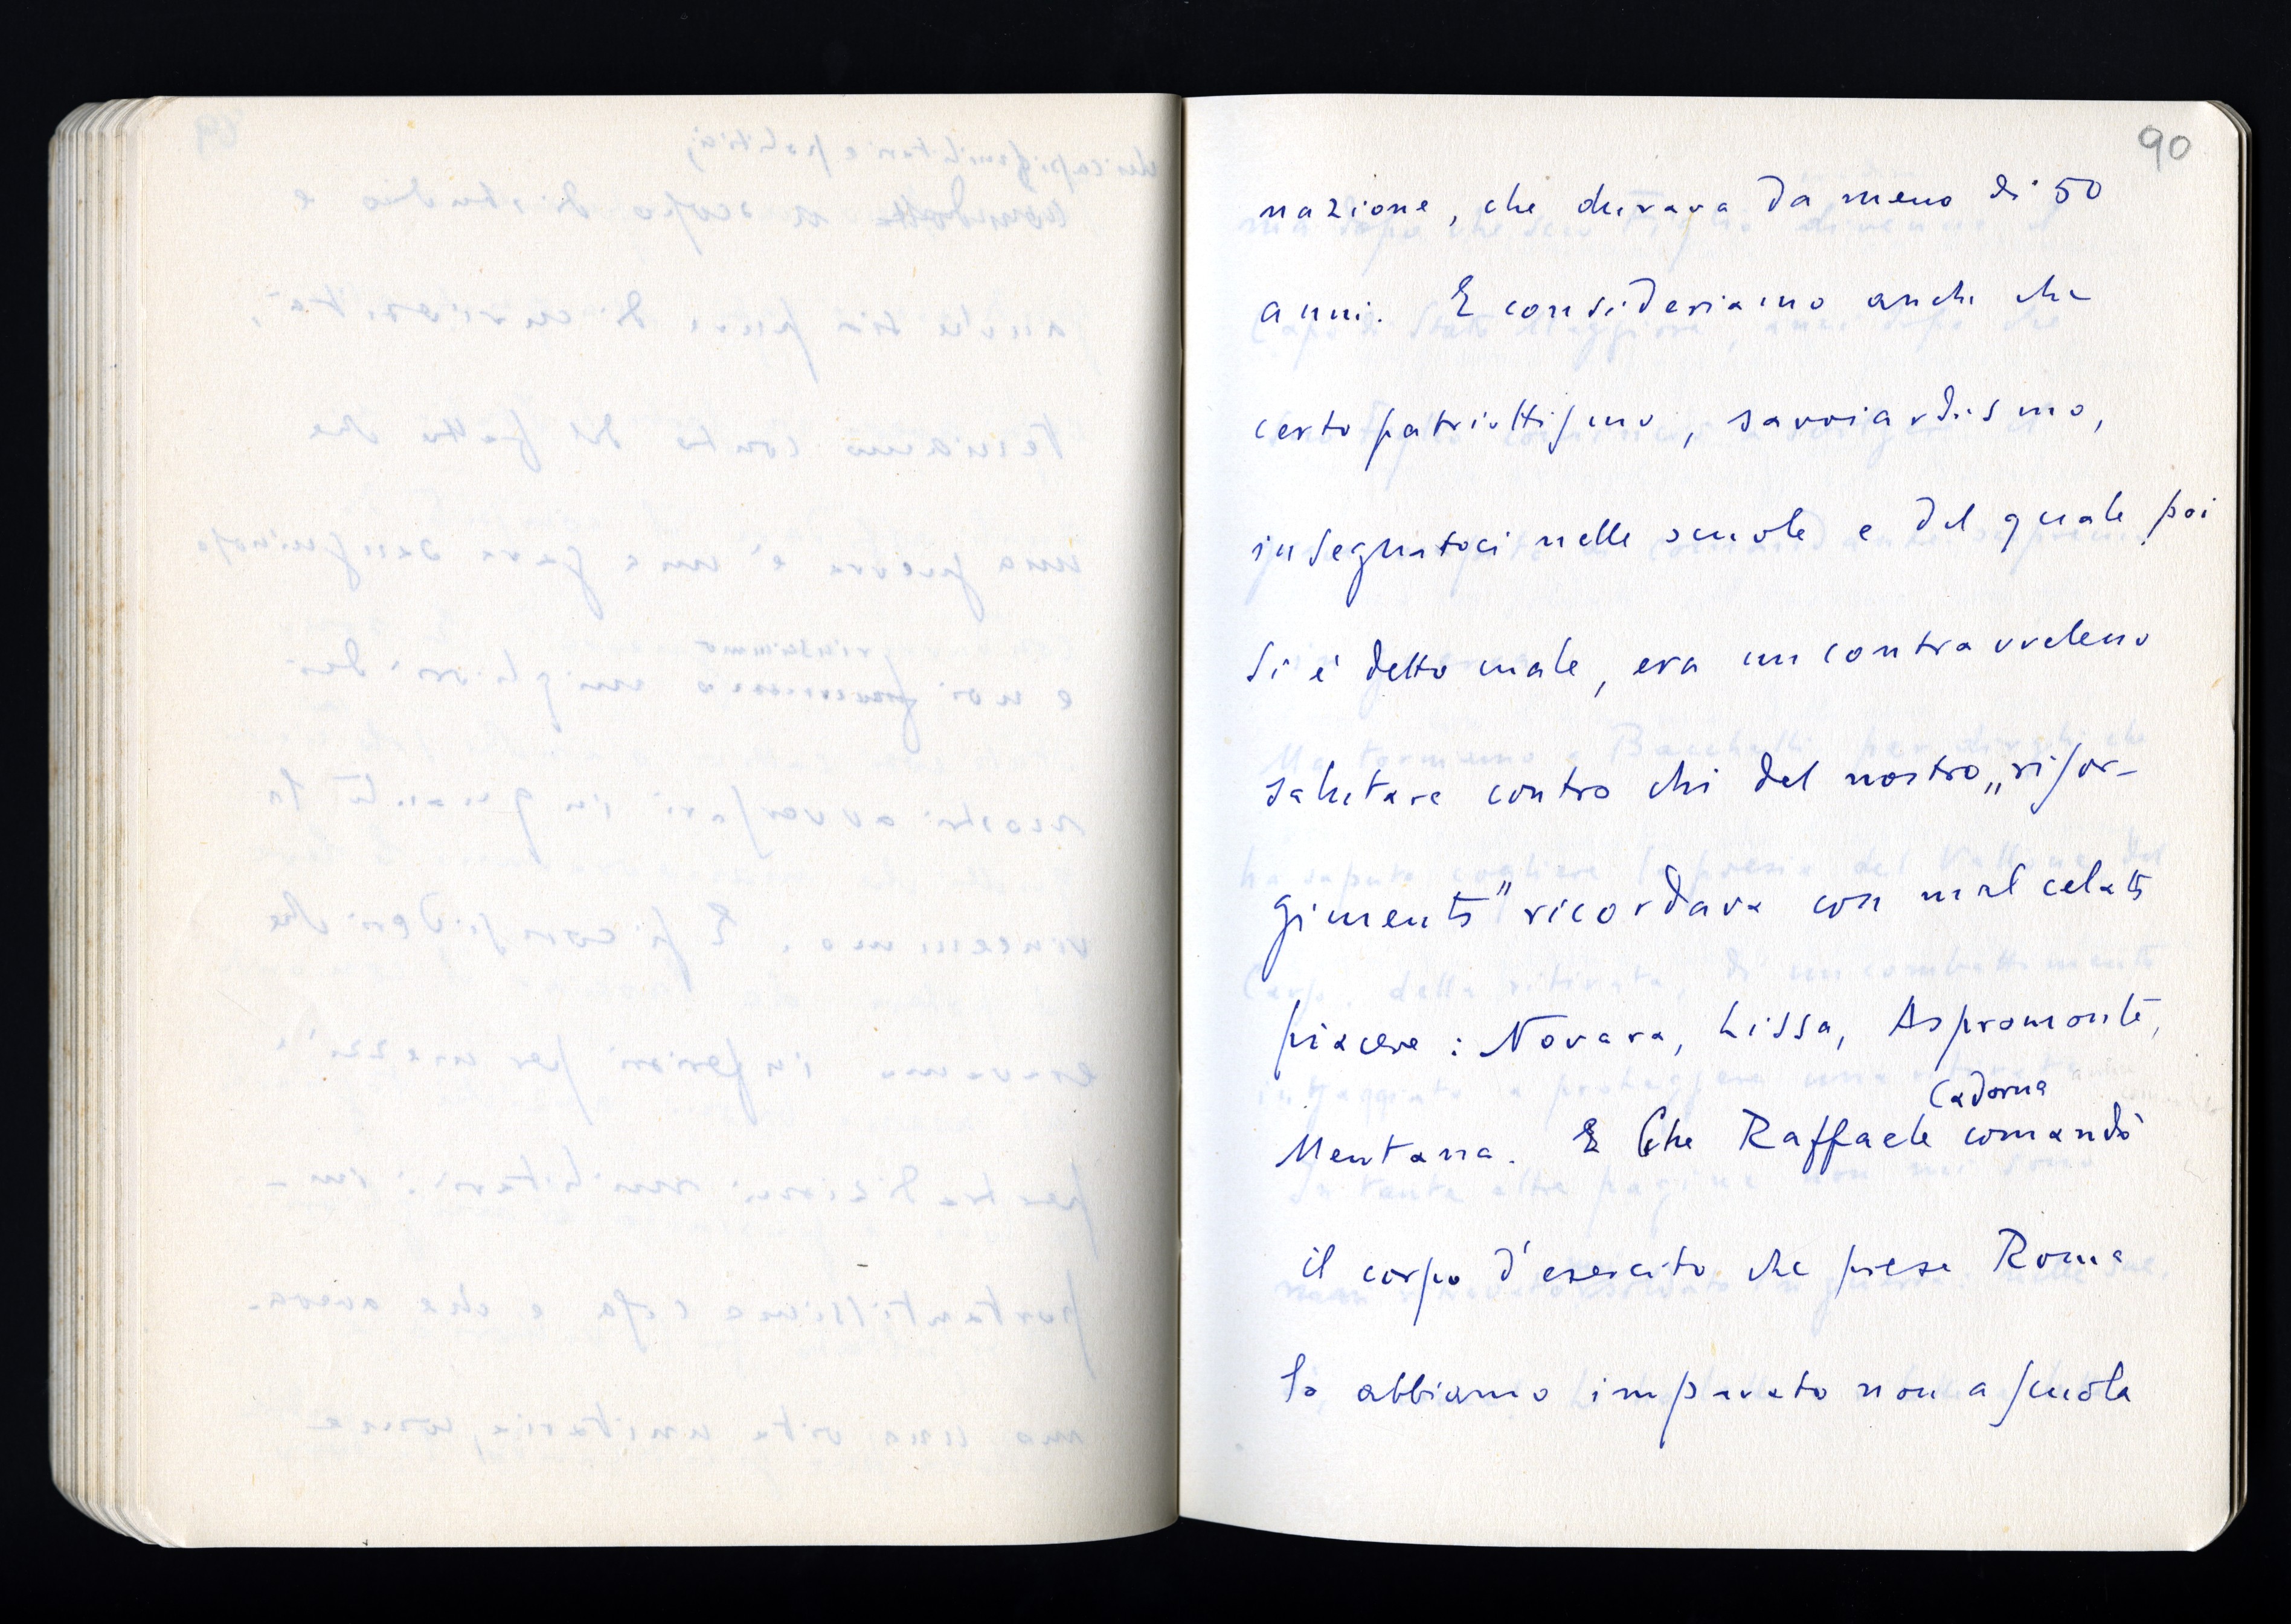 90
nazione, che durava da meno di 50
anni. E consideriamo anche che
certo patriottismo, savoiardismo,
insegnatoci nelle scuole e del quale poi
si è detto male, era un contravveleno
salutare contro chi del nostro „risor-
gimento" ricordava con mal celato
piacere: Novara, Lissa, Aspromonte,
Mentana. E Che Raffaele Cadorna comandò
il corpo d'esercito che prese Roma
lo abbiamo imparato non a scuola